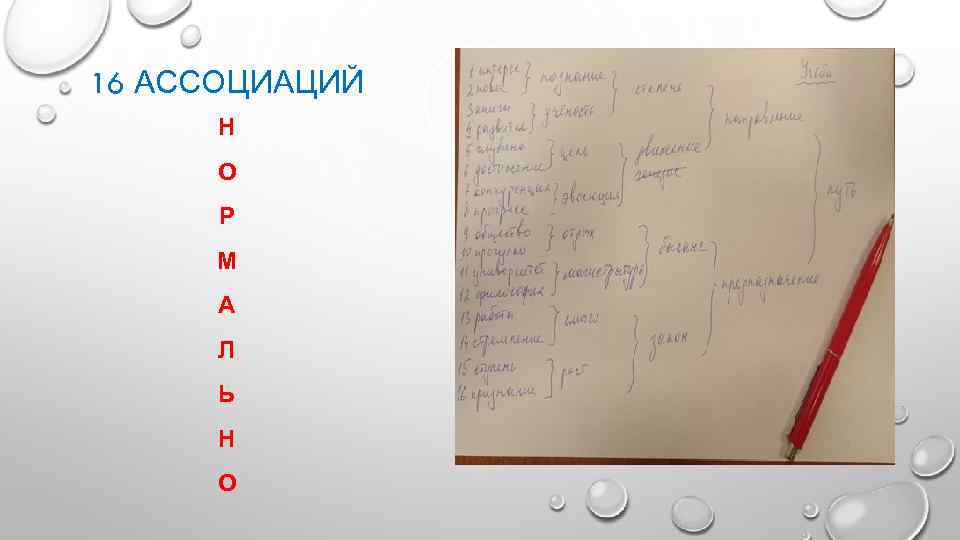 16 АССОЦИАЦИЙ
Н
О
Р
М
А
Л
Ь
Н
О
Учеба
1 интерес
2 новое
3 книги
4 развитие
5 глубина
6 достижение
7 конкуренция
8 прогресс
9 общество
10 прогулка
11 университет
12 философия
13 работа
14 стремление
15 ступень
16 признание
познание
учёность
цель
эволюция
отдых
магистратура
смысл
рост
движение
баланс
закон
направление
предназначение
путь